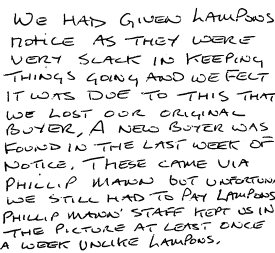 WE HAD GIVEN LAMPONS
NOTICE AS THEY WERE
VERY SLACK IN KEEPING
THINGS GOING AND WE FELT
IT WAS DUE TO THIS THAT
WE LOST OUR ORIGINAL
BUYER, A NEW BUYER WAS
FOUND IN THE LAST WEEK OF
NOTICE. THESE CAME VIA
PHILLIP MANN BUT UNFORTUN
WE STILL HAD TO PAY LAMPONS
PHILLIP MANN' STAFF KEPT US IN
THE PICTURE AT LEAST ONCE
A WEEK UNLIKE LAMPONS.